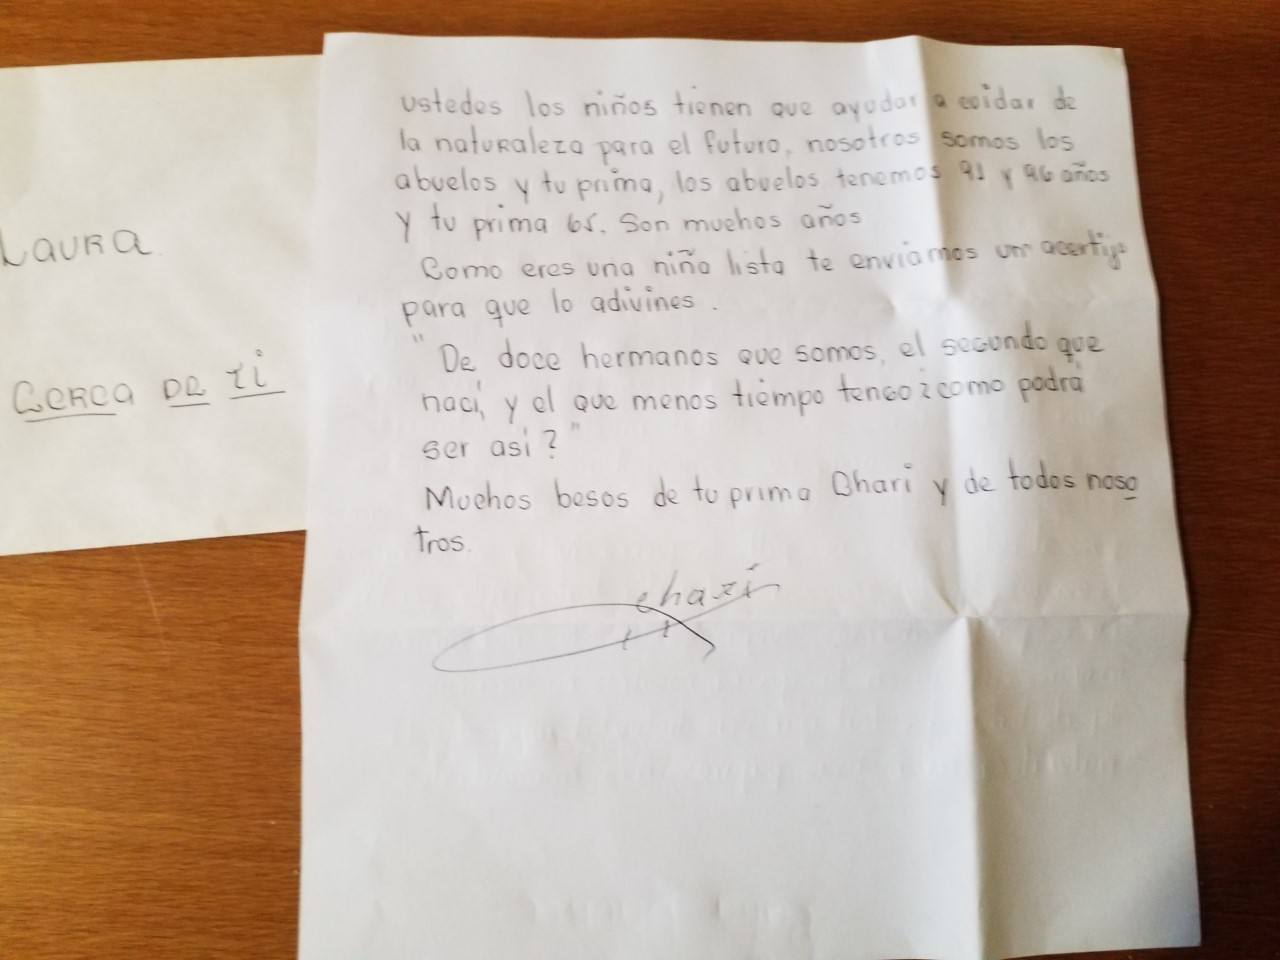 Laura
Cerca de ti
ustedes los niños tienen que ayudar a cuidar de
la naturaleza para el futuro, nosotros somos los
abuelos y tu prima, los abuelos tenemos 91 y 96 años
y tu prima 65. Son muchos años
Como eres una niña lista te enviamos un acertijo
para que lo adivines.
"De doce hermanos que somos, el segundo que
nací, y el que menos tiempo tengo ¿como podrá
ser asi?"
Muchos besos de tu prima Chari y de todos noso
tros.
Chari